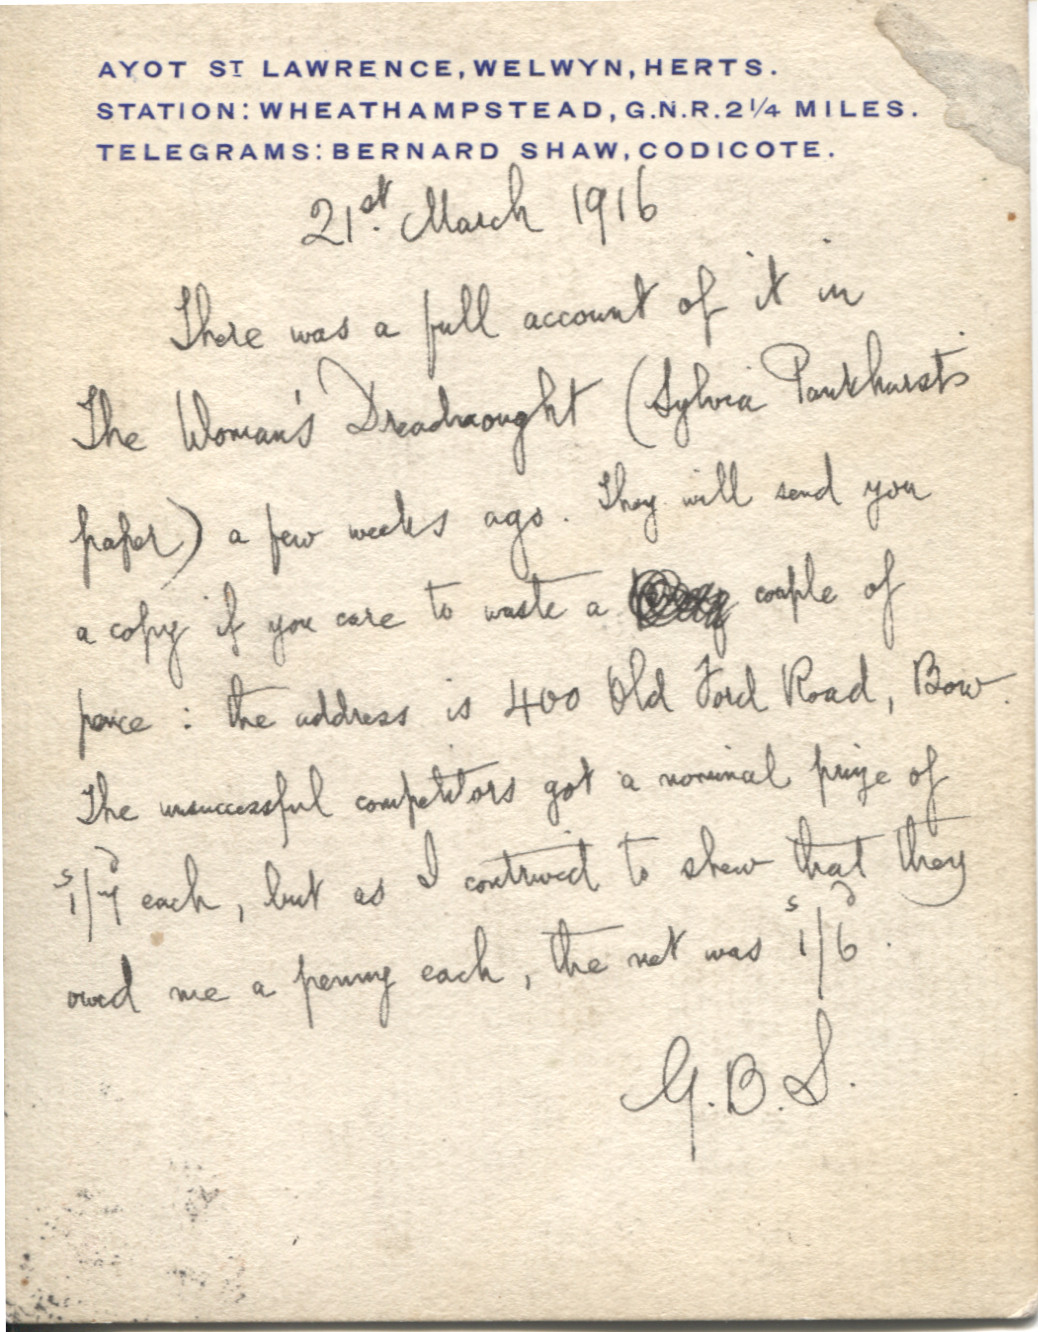 AYOT ST LAWRENCE, WELWYN, HERTS.
STATION: WHEATHAMPSTEAD, G.N.R. 2¼ MILES.
TELEGRAMS: BERNARD SHAW, CODICOTE.
21st. March 1916
There was a full account of it in
The Woman's Dreadnought (Sylvia Pankhurst's
paper) a few weeks ago. They will send you
a copy if you care to waste a couple of
pence : the address is 400 Old Ford Road, Bow.
The unsuccessful competitors got a nominal prize of
s1/7d each, but as I contrived to shew that they
owed me a penny each, the net was s1/6d.
G.B.S.